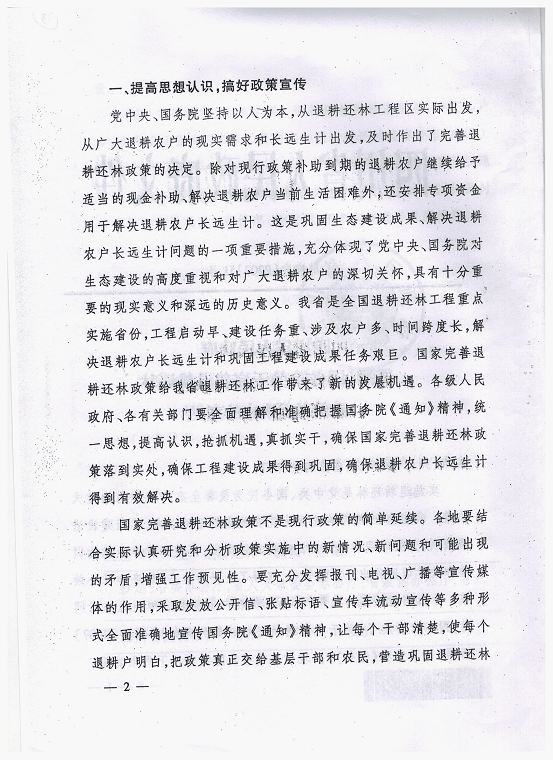 一、提高思想认识,搞好政策宣传
党中央、国务院坚持以人为本,从退耕还林工程区实际出发,
从广大退耕农户的现实需求和长远生计出发,及时作出了完善退
耕还林政策的决定。除对现行政策补助到期的退耕农户继续给予
适当的现金补助、解决退耕农户当前生活困难外,还安排专项资金
用于解决退耕农户长远生计。这是巩固生态建设成果、解决退耕
农户长远生计问题的一项重要措施,充分体现了党中央、国务院对
生态建设的高度重视和对广大退耕农户的深切关怀,具有十分重
要的现实意义和深远的历史意义。我省是全国退耕还林工程重点
实施省份,工程启动早、建设任务重、涉及农户多、时间跨度长,解
决退耕农户长远生计和巩固工程建设成果任务艰巨。国家完善退
耕还林政策给我省退耕还林工作带来了新的发展机遇。各级人民
政府、各有关部门要全面理解和准确把握国务院《通知》精神,统
一思想,提高认识,抢抓机遇,真抓实干,确保国家完善退耕还林政
策落到实处,确保工程建设成果得到巩固,确保退耕农户长远生计
得到有效解决。
国家完善退耕还林政策不是现行政策的简单延续。各地要结
合实际认真研究和分析政策实施中的新情况、新问题和可能出现
的矛盾,增强工作预见性。要充分发挥报刊、电视、广播等宣传媒
体的作用,采取发放公开信、张贴标语、宣传车流动宣传等多种形
式全面准确地宣传国务院《通知》精神,让每个干部清楚,使每个
退耕户明白,把政策真正交给基层干部和农民,营造巩固退耕还林
— 2 —